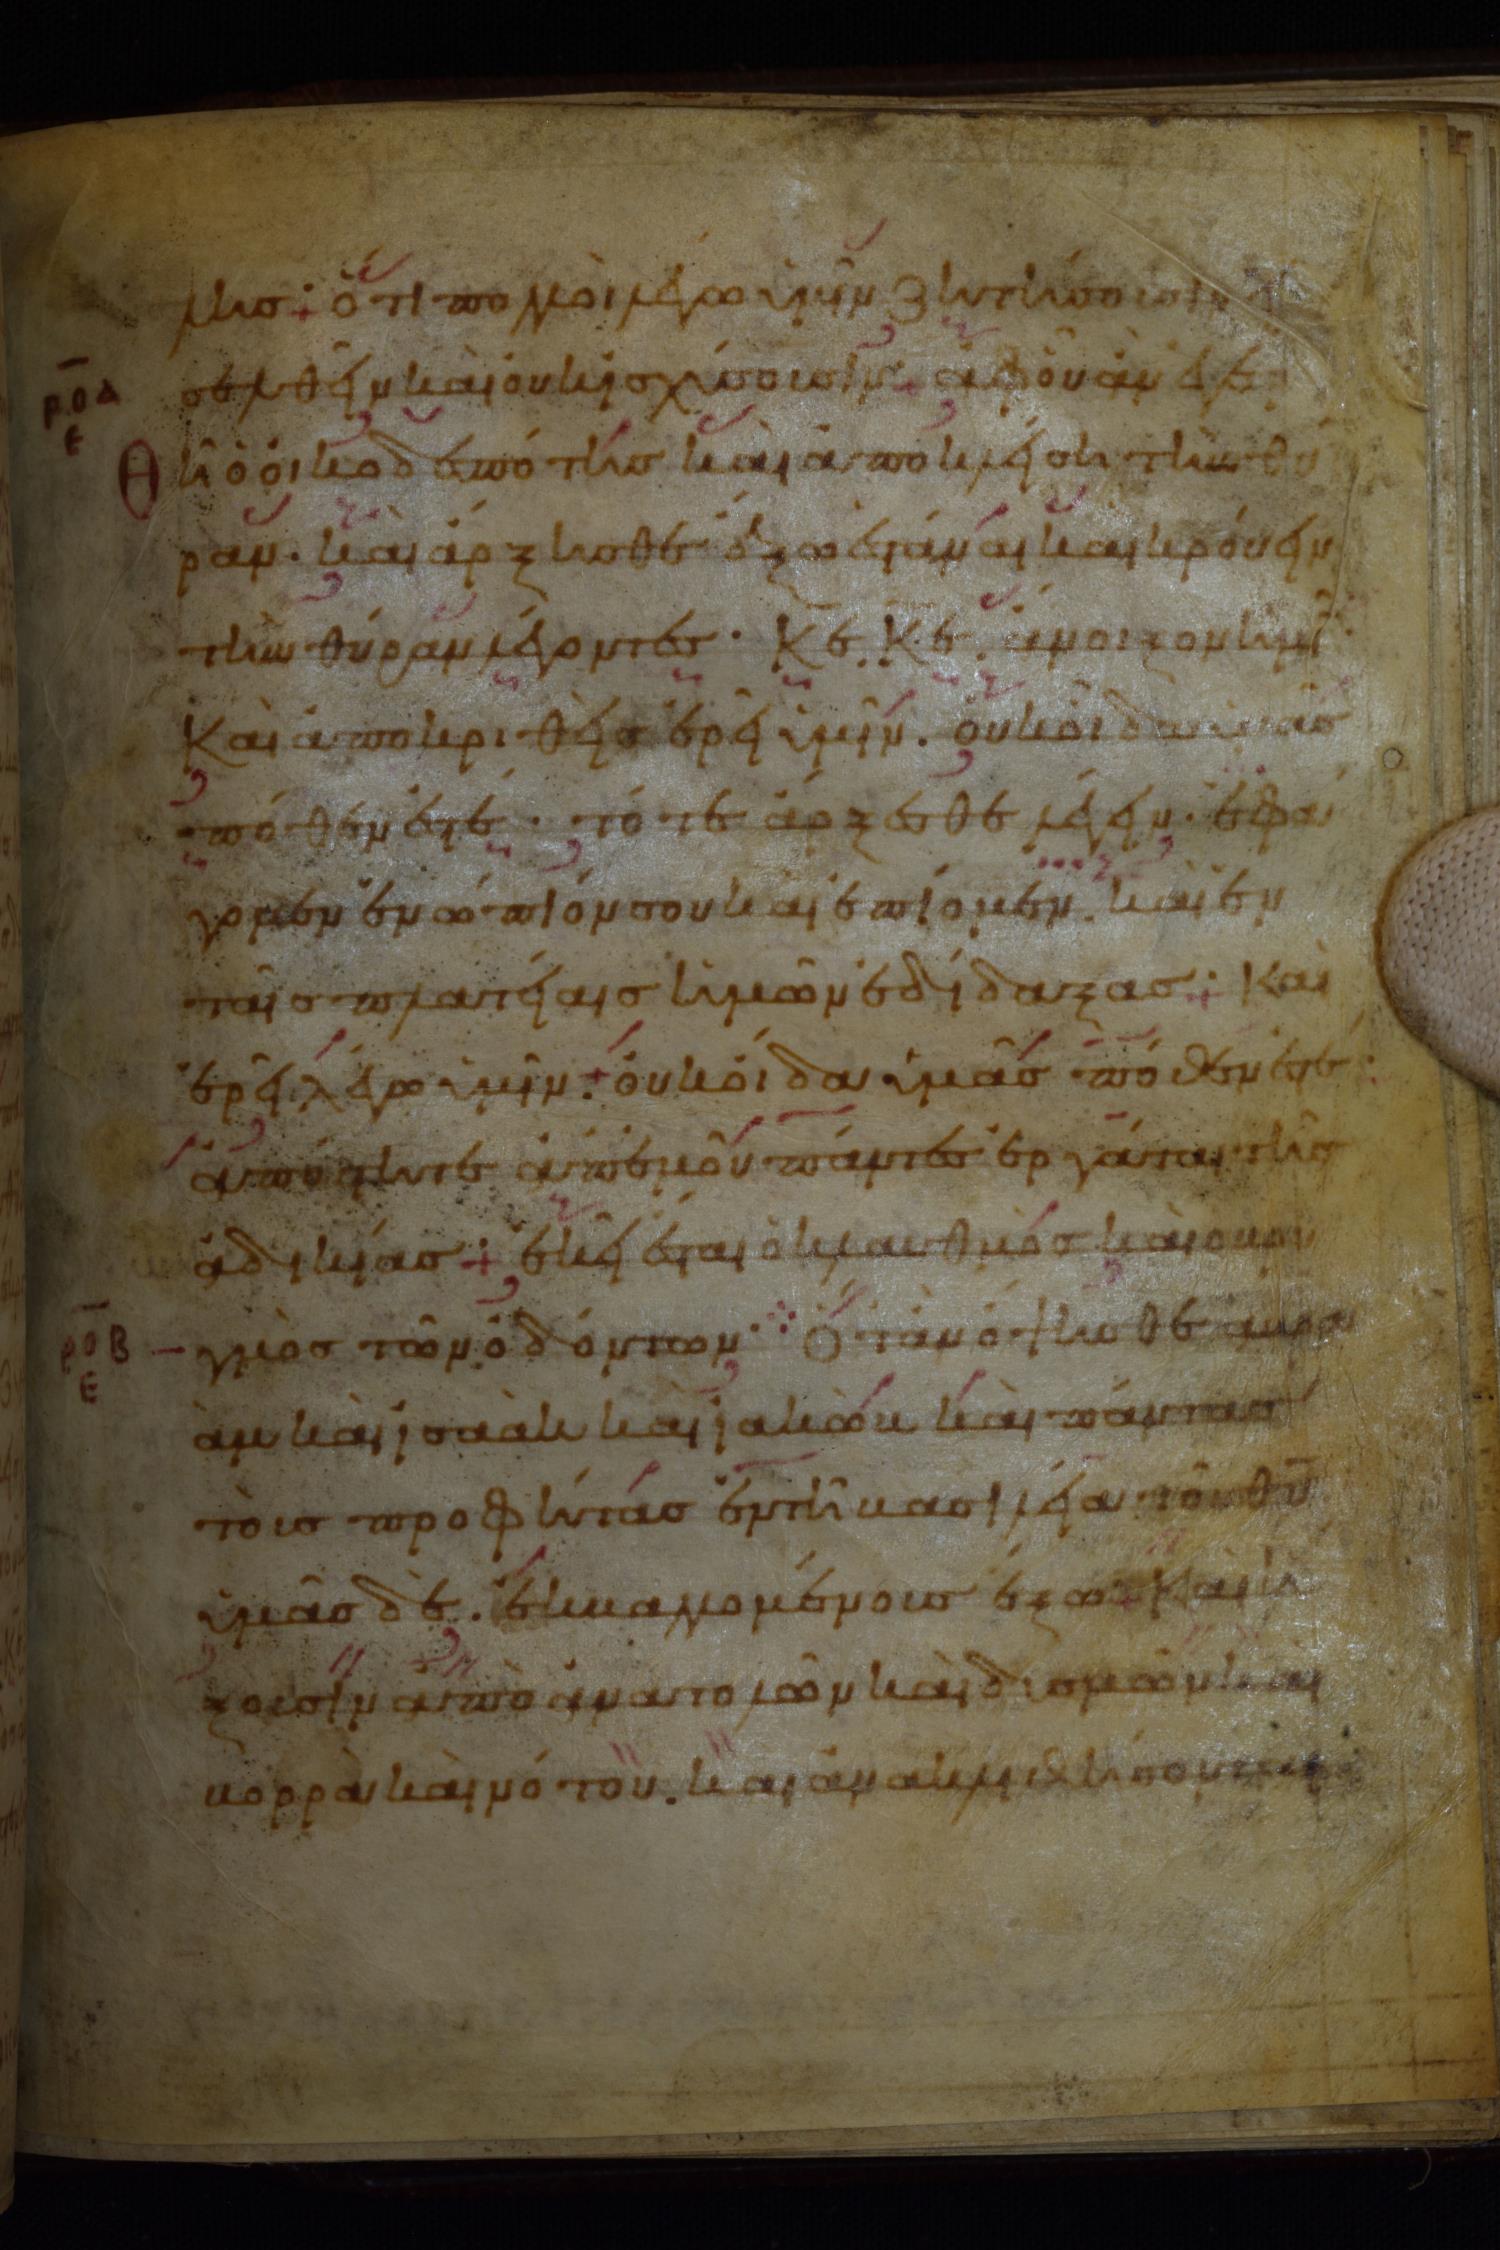 λης· ὅτι πολλοὶ λέγω ὑμῖν ζητήσουσιν
ρ̅ο̅δ̅ σελθεῖν καὶ ουκ ἰσχύσουσιν· ἀφ οὗ ἀν ἐγερ
ε
Θῆ ὁ οἰκοδεσπότης καὶ ἀποκλείση τὴν θύ
ραν· καὶ ἄρξησθε ἔξω ἑστάναι καὶ κρούειν
τὴν θύραν λέγοντες· Κ̅ε̅. Κ̅ε̅. ἄνοιξον ἡμῖ
Καὶ ἀποκριθεὶς ἐρεῖ ὑμῖν. οὐκ οἶδα ὑμᾶς
πόθεν ἐστέ· τότε ἄρξεσθε λέγειν· ἐφά
γομεν ἐνώπιόν σου καὶ ἐπίομεν. καὶ ἐν
ταῖς πλατείαις ἡμῶν ἐδίδαξας· Καὶ
ἐρεῖ λέγω ὑμῖν· οὐκ οἶδα ὑμᾶς πόθεν ἐστέ·
ἀπόστητε ἀπ ἐμοῦ πάντες ἐργάται τῆς
ἀδικίας· ἐκεῖ ἔσται ὁ κλαυθμὸς καὶ ὁ βρυ
ρ̅ο̅β̅ γμὸς τῶν ὀδόντων· Ὅταν ὄψησθε αβρα
ε
ὰμ καὶ ἰσαὰκ καὶ ἰακὼβ καὶ πάντας
τοὺς προφήτας ἐν τῆ βασιλεία τοῦ θ̅υ̅
ὑμᾶς δὲ. ἐκβαλλομένους ἔξω· Καὶ ἥ
ξουσιν ἀπὸ ἀνατολῶν καὶ δυσμῶν καὶ
βορρὰ καὶ νότου. καὶ ἀνακλιθήσονται